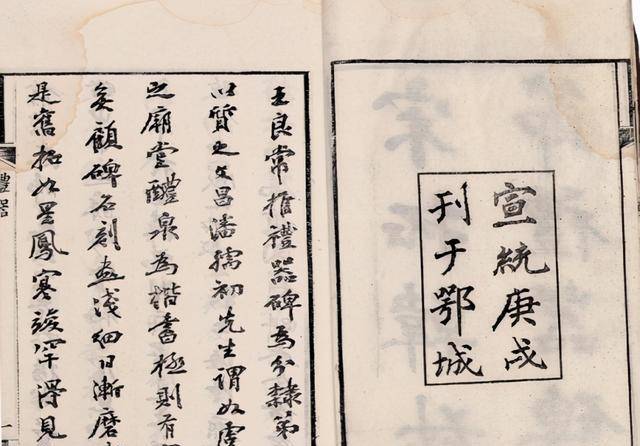 宣統庚戌
刊于鄂城
王良常推禮器碑為分隸第
以質之文昌潘孺初先生謂如虞
之廟堂醴泉為楷書極則有
矣顧碑石刻畫淺細日漸磨
是舊拓如星鳳寒畯罕得見
禮器
一